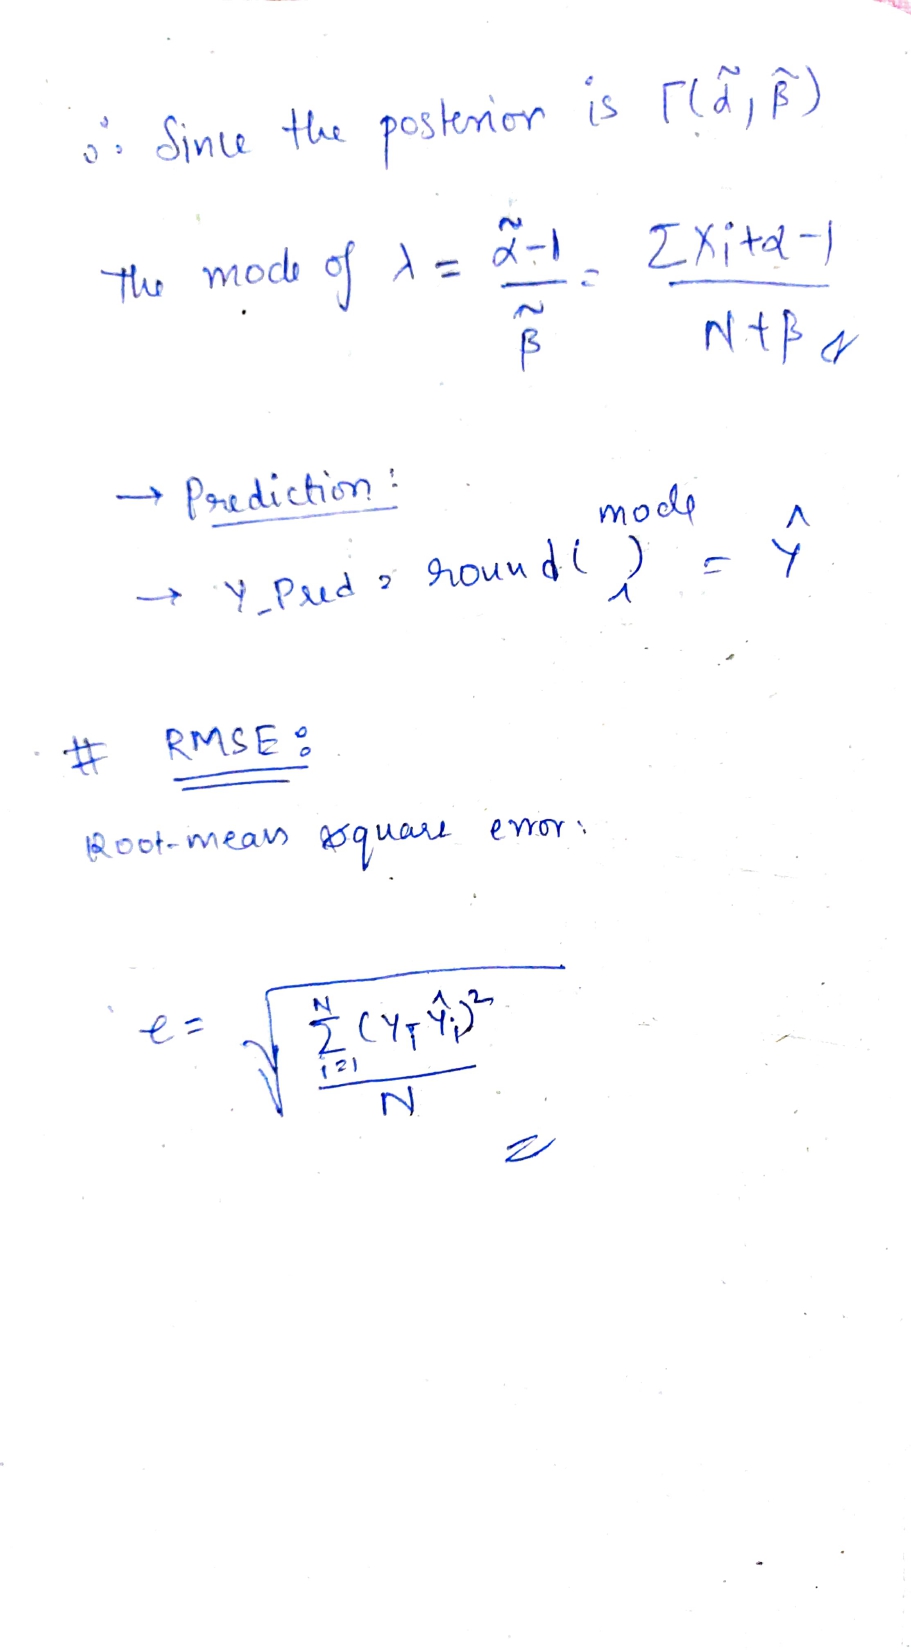 ∴ Since the posterior is Γ(α̃, β̃)
The mode of λ = (α̃-1)/β̃ = (ΣXi+α-1)/(N+β)
→ Prediction:
→ Y_Pred = round(λ^mode) = Ŷ
# RMSE:
Root-mean square error:
e = √(Σ_{i=1}^{N} (Yi-Ŷi)²/N)